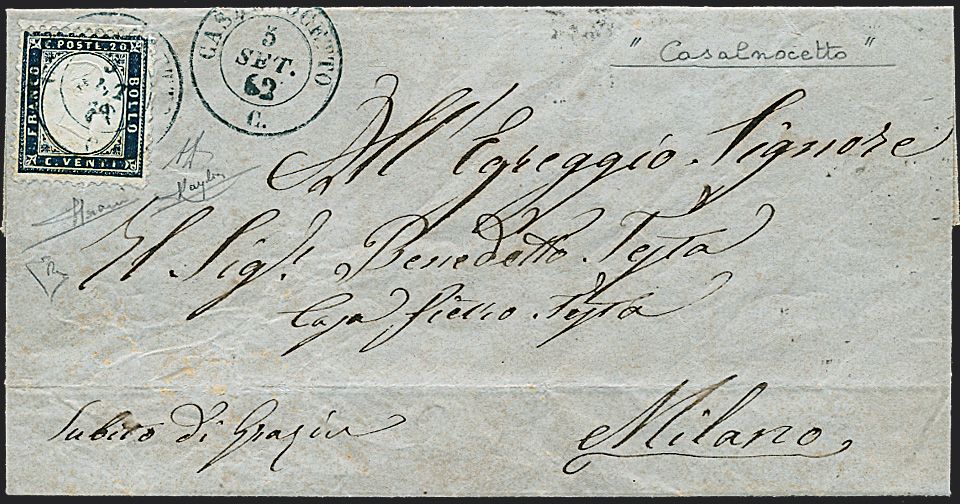 C. POSTE. 20
FRANCO
BOLLO
C. VENTI
CASALNOCETTO
5
SET.
62
C.
" Casalnocetto "
All' Egreggio Signore
Il Sig.r Benedetto Testa
Casa Testa
Subito di Grazia
Milano